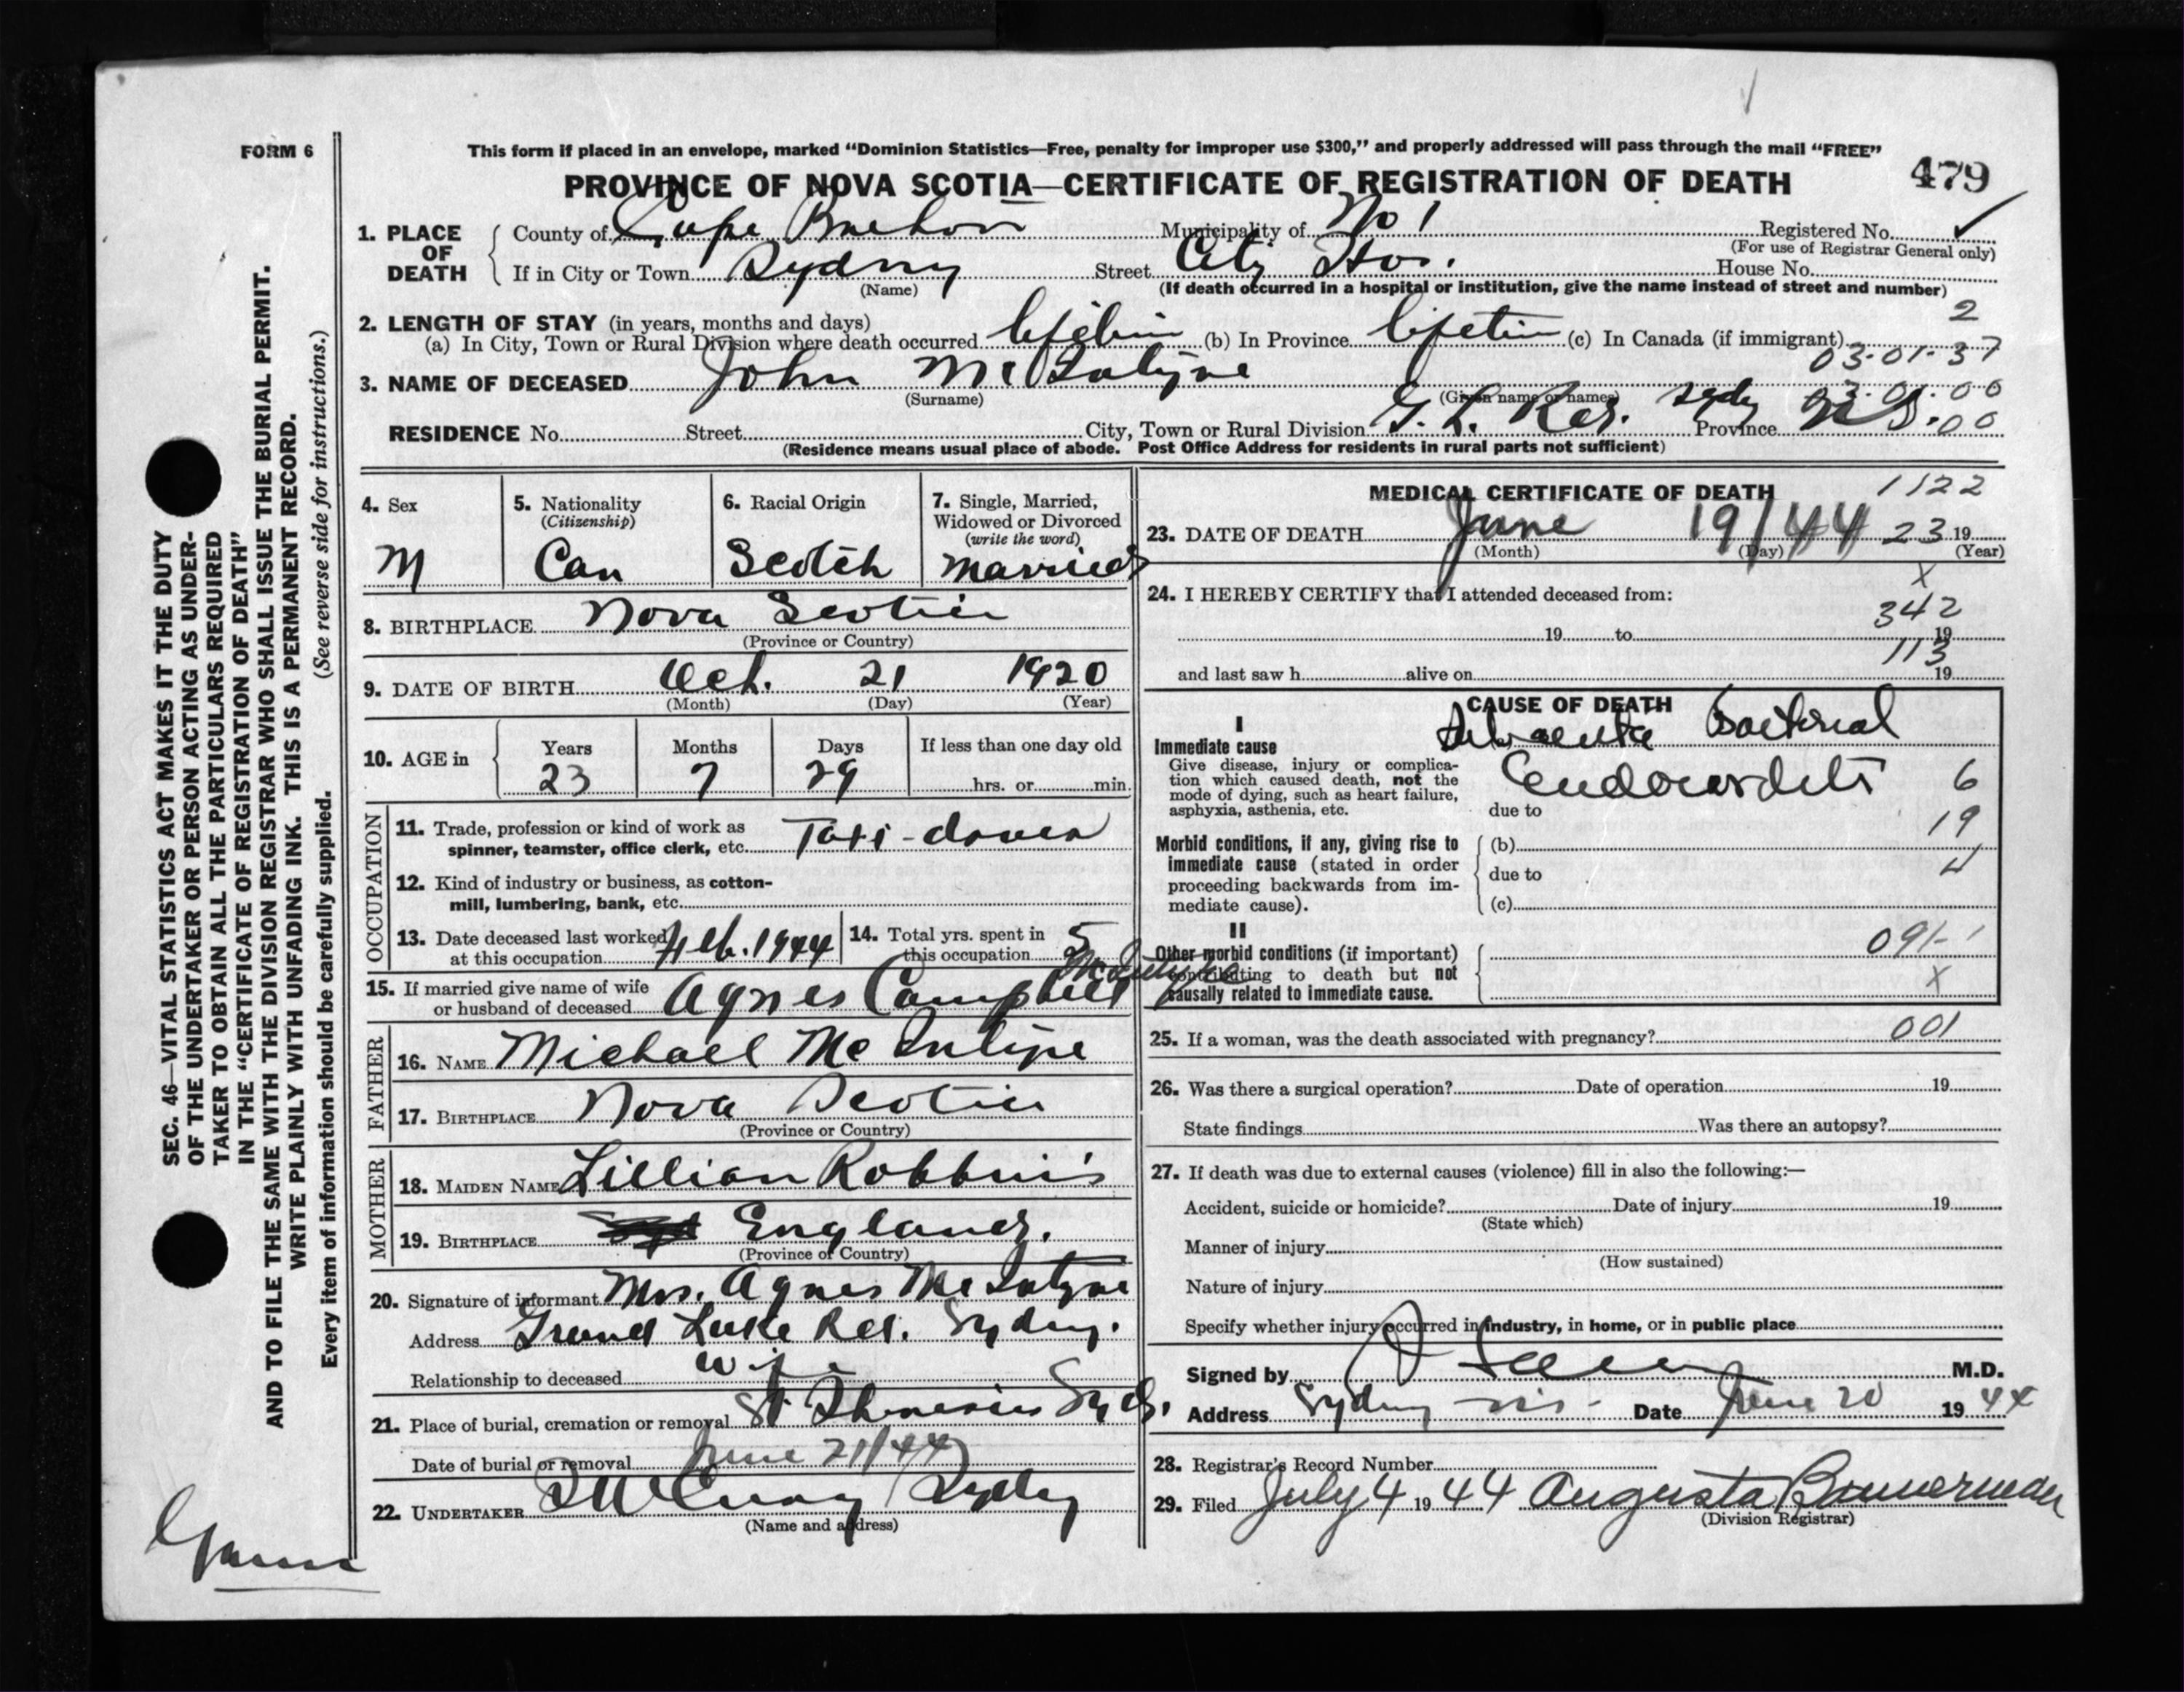 FORM 6
This form if placed in an envelope, marked "Dominion Statistics—Free, penalty for improper use $300," and properly addressed will pass through the mail "FREE"
PROVINCE OF NOVA SCOTIA—CERTIFICATE OF REGISTRATION OF DEATH 479
1. PLACE OF DEATH
County of Cape Breton Municipality of No 1 Registered No.
(For use of Registrar General only)
If in City or Town Sydney Street City Hos. House No.
(Name) (If death occurred in a hospital or institution, give the name instead of street and number)
2. LENGTH OF STAY (in years, months and days) 2
(a) In City, Town or Rural Division where death occurred lifetim (b) In Province lifetim (c) In Canada (if immigrant)
03-01-37
3. NAME OF DECEASED John McIntyre
(Surname) (Given name or names) 03-01-00
RESIDENCE No. Street City, Town or Rural Division G. L. Rd. Sydy Province N S. 00
(Residence means usual place of abode. Post Office Address for residents in rural parts not sufficient)
4. Sex M
5. Nationality (Citizenship) Can
6. Racial Origin Scotch
7. Single, Married, Widowed or Divorced (write the word) Married
8. BIRTHPLACE Nova Scotia
(Province or Country)
9. DATE OF BIRTH Oct. 21 1920
(Month) (Day) (Year)
10. AGE in Years 23 Months 7 Days 29 If less than one day old hrs. or min.
OCCUPATION
11. Trade, profession or kind of work as spinner, teamster, office clerk, etc. Taxi-driver
12. Kind of industry or business, as cotton-mill, lumbering, bank, etc.
13. Date deceased last worked at this occupation Feb. 1944
14. Total yrs. spent in this occupation 5
15. If married give name of wife or husband of deceased Agnes Campbell McIntyre
FATHER
16. NAME Michael McIntyre
17. BIRTHPLACE Nova Scotia
(Province or Country)
MOTHER
18. MAIDEN NAME Lillian Robbins
19. BIRTHPLACE England.
(Province or Country)
20. Signature of informant Mrs. Agnes McIntyre
Address Grand Lake Rd. Sydney.
Relationship to deceased wife
21. Place of burial, cremation or removal St. Sydy.
Date of burial or removal June 21/44
22. UNDERTAKER Sydney
(Name and address)
MEDICAL CERTIFICATE OF DEATH 1122
23. DATE OF DEATH June 19/44 23 19
(Month) (Day) (Year)
24. I HEREBY CERTIFY that I attended deceased from: X
342
19 to 19
113
and last saw h alive on 19
CAUSE OF DEATH
I
Immediate cause
Give disease, injury or complication which caused death, not the mode of dying, such as heart failure, asphyxia, asthenia, etc.
Subacute Bacterial
Endocarditis 6
due to
19
Morbid conditions, if any, giving rise to immediate cause (stated in order proceeding backwards from immediate cause).
(b)
due to 4
(c)
II
Other morbid conditions (if important) contributing to death but not causally related to immediate cause.
091-1
X
25. If a woman, was the death associated with pregnancy? 001
26. Was there a surgical operation? Date of operation 19
State findings Was there an autopsy?
27. If death was due to external causes (violence) fill in also the following:—
Accident, suicide or homicide? Date of injury 19
(State which)
Manner of injury
(How sustained)
Nature of injury
Specify whether injury occurred in industry, in home, or in public place
Signed by M.D.
Address Sydney N.S. Date June 20 19 44
28. Registrar's Record Number
29. Filed July 4 19 44 Augusta Bannerman
(Division Registrar)
SEC. 46—VITAL STATISTICS ACT MAKES IT THE DUTY
OF THE UNDERTAKER OR PERSON ACTING AS UNDER-
TAKER TO OBTAIN ALL THE PARTICULARS REQUIRED
IN THE "CERTIFICATE OF REGISTRATION OF DEATH"
AND TO FILE THE SAME WITH THE DIVISION REGISTRAR WHO SHALL ISSUE THE BURIAL PERMIT.
WRITE PLAINLY WITH UNFADING INK. THIS IS A PERMANENT RECORD.
Every item of information should be carefully supplied. (See reverse side for instructions.)